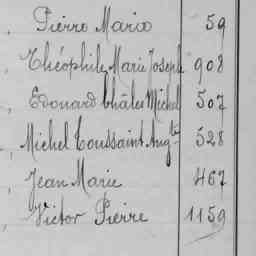 Pierre Marie 59
Théophile Marie Joseph 908
Edouard Châles Michel 507
Michel Toussaint Augte 528
Jean Marie 467
Victor Pierre 1159